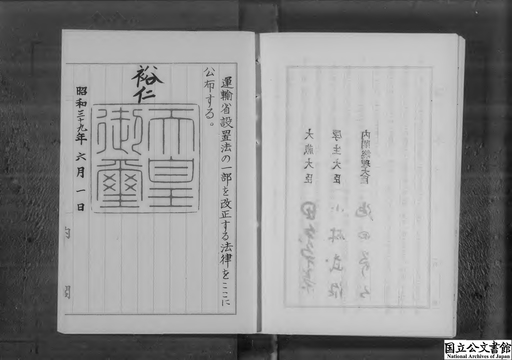 運輸省設置法の一部を改正する法律をここに
公布する。
裕仁
天皇
御璽
昭和三十九年六月一日
内閣
内閣総理大臣
厚生大臣
大蔵大臣
国立公文書館
National Archives of Japan